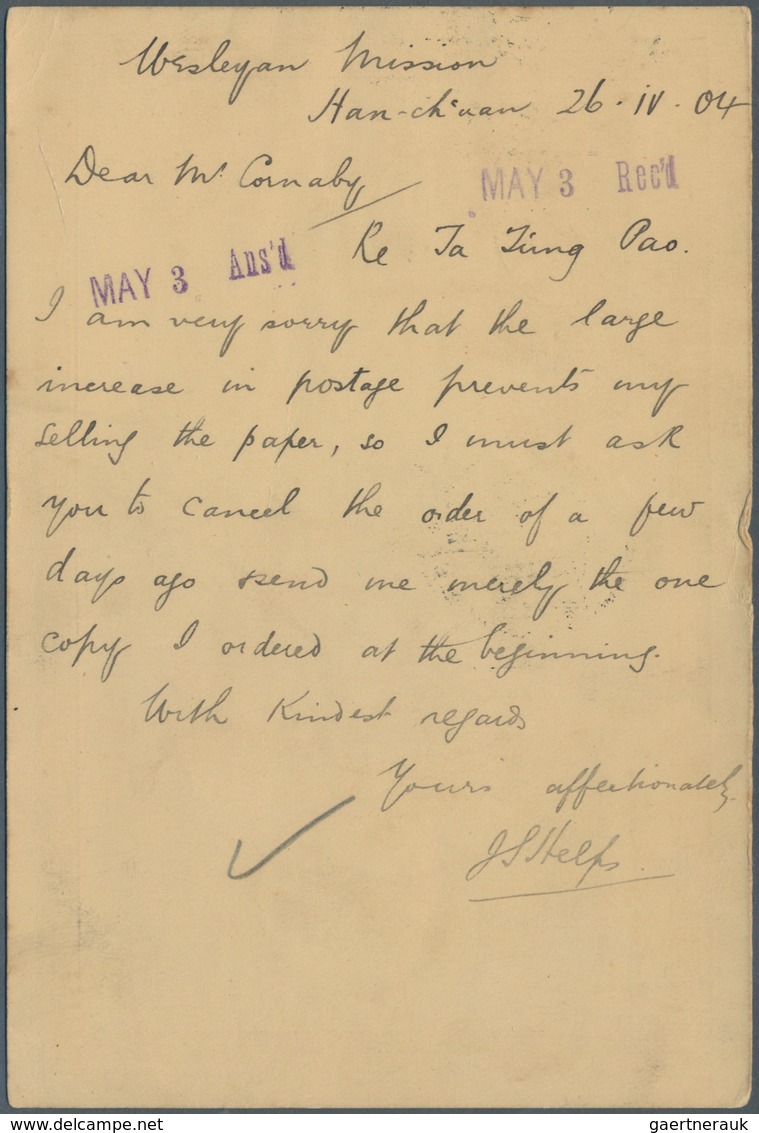 Wesleyan Mission
Han-ch'uan 26·IV·04
Dear Mr Cornaby
MAY 3 Rec'd
Re Ta Tung Pao.
MAY 3 Ans'd
I am very sorry that the large
increase in postage prevents my
selling the paper, so I must ask
you to cancel the order of a few
days ago & send me merely the one
copy I ordered at the beginning.
With Kindest regards
Yours affectionately
JSHelps
gaertnerauk